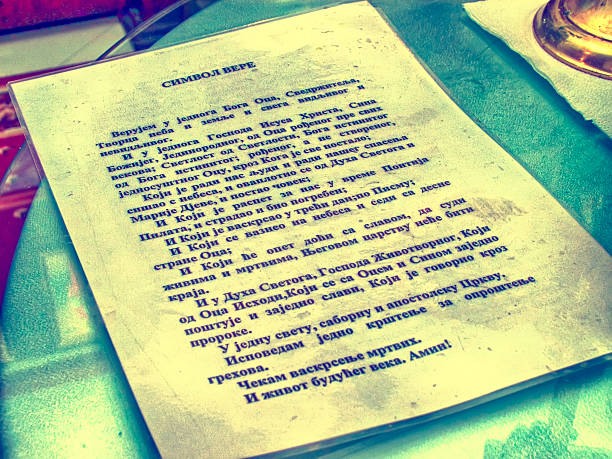 СИМВОЛ ВЕРЕ
Верујем у једнога Бога Оца, Сведржитеља,
Творца неба и земље и свега видљивог и
невидљивог.
И у једнога Господа Исуса Христа, Сина
Божијег, Јединородног, од Оца рођеног пре свих
векова; Светлост од Светлости, Бога истинитог
од Бога истинитог; рођеног, а не створеног,
једносуштног Оцу, кроз Кога је све постало;
Који је ради нас људи и ради нашег спасења
сишао с небеса, и оваплотио се од Духа Светога и
Марије Дјеве, и постао човек;
И Који је распет за нас у време Понтија
Пилата, и страдао и био погребен;
И Који је васкрсао у трећи дан,по Писму;
И Који се вазнео на небеса и седи са десне
стране Оца;
И Који ће опет доћи са славом, да суди
живима и мртвима, Његовом царству неће бити
краја.
И у Духа Светога, Господа Животворног, Који
од Оца Исходи,Који се са Оцем и Сином заједно
поштује и заједно слави, Која је говорио кроз
пророке.
У једну свету, саборну и апостолску Цркву.
Исповедам једно крштење за опроштење
грехова.
Чекам васкрсење мртвих.
И живот будућег века. Амин!